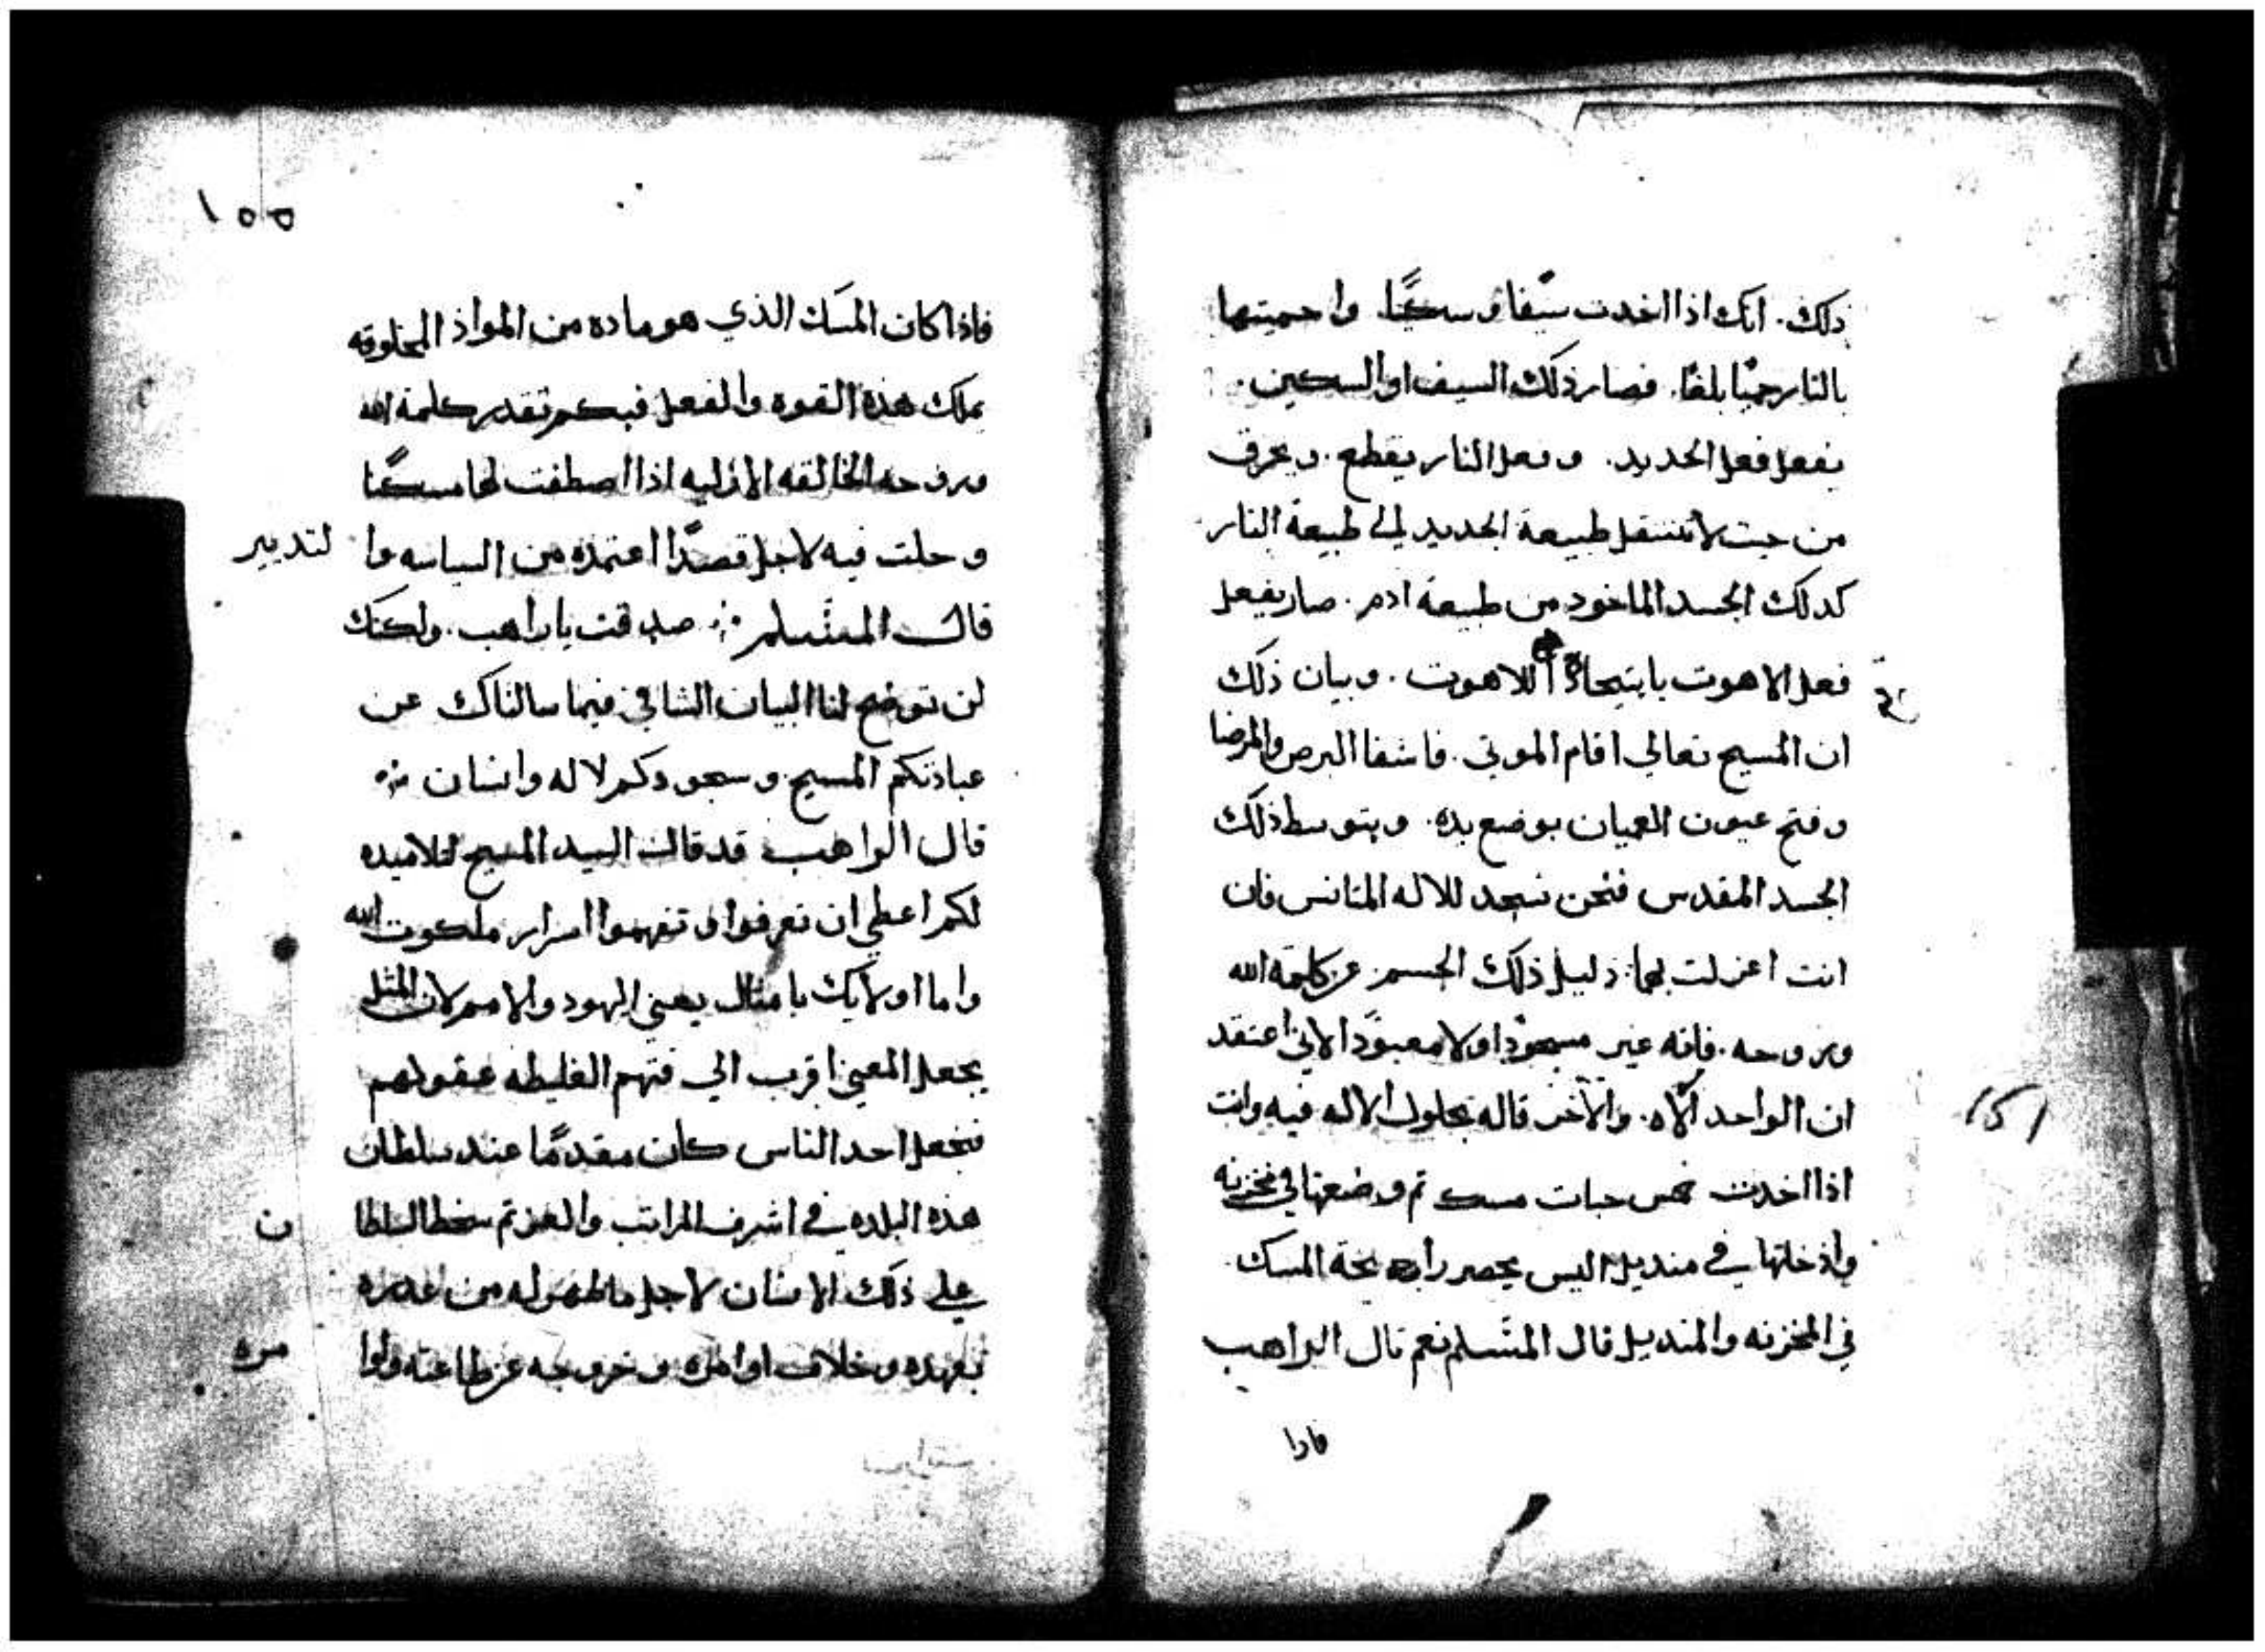 ذلك. انك اذا اخدت سيفا وسكينًا. واحميتها
بالنار حميًا بلغًا. فصار ذلك السيف او السكين.
يفعل فعل الحديد. وفعل النار يقطع. ويحرق
من حيت لا تنتقل طبيعة الحديد الي طبيعة النار
كدلك الجسد الماخود من طبيعة ادم. صار يفعل
فعل الاهوت باتيحاد اللاهوت. وبيان ذلك
ان المسيح تعالي اقام الموتي. فاشفا البرص والمرضا
وفتح عيون العميان بوضع يده. وبتوسط ذلك
الجسد المقدس فنحن نسجد للاله المتانس فان
انت اعزلت دليل ذلك الجسم عن كلمة الله
وروحه. فانه غير مسجودًا ولا معبودًا لاني اعتقد
ان الواحد الاه. والاخر قاله بحلول الاله فيه وانت
اذا اخدت خمس حبات مسك تم وضعتها في مخزنه
واذخلتها في منديل اليس يحصر رايحة المسك
في المخزنه والمنديل قال المسلم نعم قال الراهب
فادا
١٥١
١٥٥
فاذا كان المسك الذي هو ماده من المواد المخلوقه
يملك هذه القوه والفعل فبكم تقدر كلمة الله
وروحه الخالقه الازليه اذا اصطفت لها مسكنًا
وحلت فيه لاجل قصدًا اعتمده من السياسه وا لتدبير
قال المسلم صدقت يا راهب. ولكنك
لن توضح لنا البيان الشافي فيما سالناك عن
عبادتكم المسيح وسجودكم لاله وانسان
قال الراهب قد قال السيد المسيح لتلاميده
لكم اعطي ان تعرفوا وتفهموا اسرار ملكوت الله
واما اولايك بامثال يعني اليهود والامم لان المثل
يجعل المعني اقرب الي فهم الغليطه عقولهم
فنجعل احد الناس كان مقدمًا عند سلطان
هذه البلده في اشرف المراتب والعز تم سخط السلطا ن
علي ذلك الانسان لاجل ما ظهر له من غدره
بعهده وخلاف اوامره وخروجه عن طاعته واوا مره